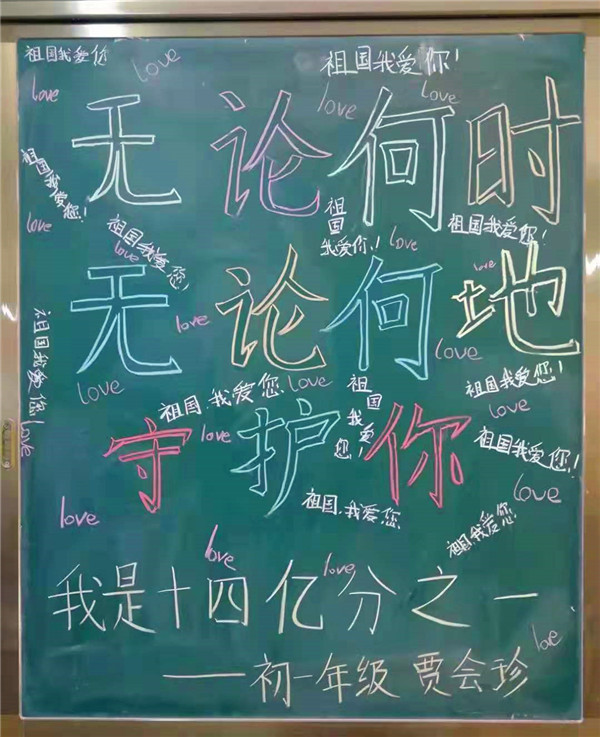 祖国我爱您
love
祖国我爱你!
love
love
love
无论何时
祖国我爱您!
love
祖国我爱您!
love
祖国
我爱你!
love
祖国我爱您!
无论何地
love
love
love
love
祖国我爱您!
love
祖国.我爱您
love
祖国我爱您!
祖国我爱您!
love
守护你
love
祖国我爱您!
love
love
祖国.我爱您
祖国.我爱您
love
love
我是十四亿分之一
love
——初一年级 贾会珍